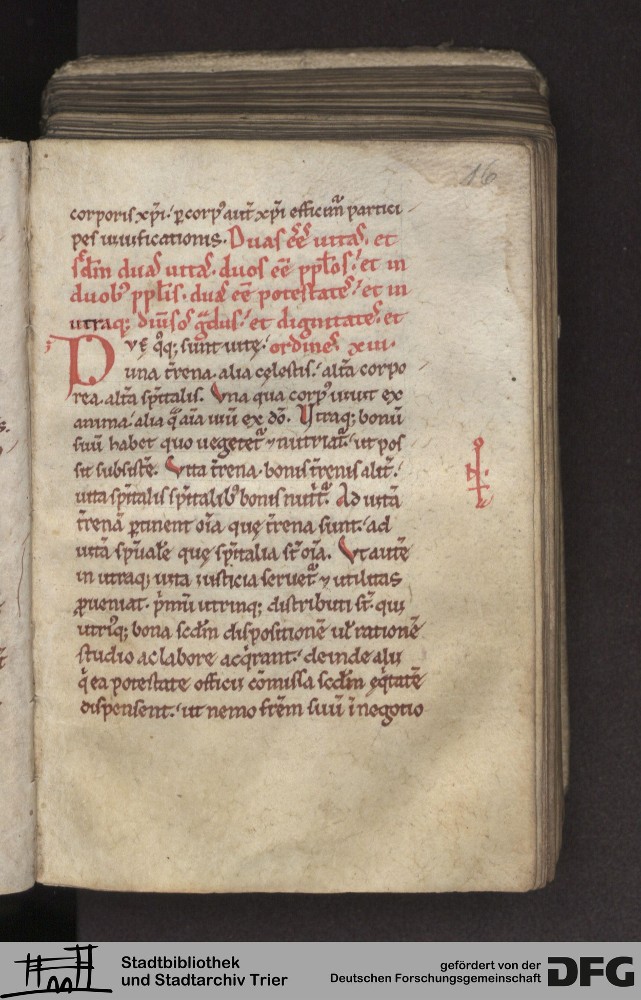 16
corporis xp̄i · ꝑ corpꝰ aūt xp̄i efficim̄ partici
pes uiuificationis. Duas eē uitas. et
scd̄m duas uitas. duos eē pp̄los. et in
duobꝰ pp̄lis. duas eē potestates. et in
utraq; diūsos gͣdus. et dignitates. et
Dvę qͦq; sunt uitę. ordines xiii.
una t̄rena. alia cęlestis. alt̄a corpo
rea. alt̄a sp̄italis. Vna qua corpꝰ uiuit ex
anima. alia qͣ aīa uiū ex dō. Vtraq; bonū
suū habet quo uegetet̄ ⁊ nutriat̄. ut pos
sit subsist̄e. Vita t̄rena. bonis t̄renis alit̄.
uita sp̄italis sp̄italibꝰ bonis nut̄it̄. Ad uitā
t̄renā ꝑtinent oīa quę t̄rena sunt. ad
uitā sp̄ualē quę sp̄italia st̄ oīa. Vt autē
in utraq; uita iusticia seruet̄ ⁊ utilitas
ꝓueniat. p̄mū utrinq; distributi st̄. qui
utriq; bona scd̄m dispositionē uł rationē
studio ac labore acq̇rant. deinde alii
q̇ ea potestate officii cōmissa scd̄m eq̇tatē
dispensent. ut nemo fr̄em suū ī negotio
Stadtbibliothek
und Stadtarchiv Trier
gefördert von der
Deutschen Forschungsgemeinschaft
DFG